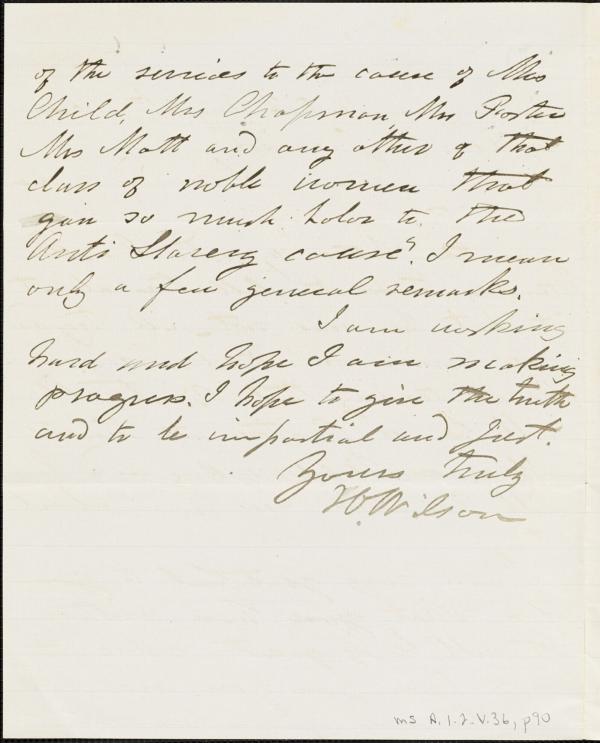 of the services to the cause of Mrs
Child, Mrs Chapman, Mrs Foster
Mrs Mott and any other of that
class of noble women that
gave so much to the
Anti Slavery cause". I mean
only a few general remarks.
I am working
hard and hope I am making
progress. I hope to give the truth
and to be impartial and just.
Yours truly
H. Wilson
ms A.1.2.V.36, p90